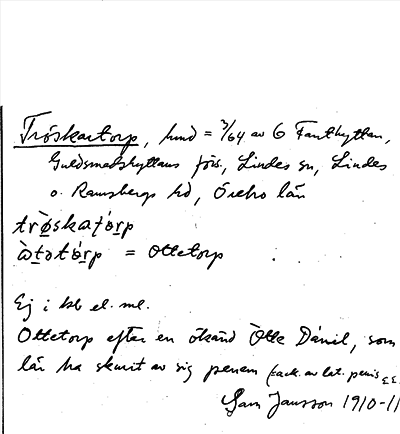 Tröskartorp, hmd = 3/64 av 6 Fanthyttan,
Guldsmedshyttans förs., Lindes sn, Lindes
o. Ramsbergs hd, Örebro län
trø̀skatɔ́rp
àtɔtɔ́rp = Ottetorp
Ej i kb el. ml.
Ottetorp efter en ökänd Otte Daniel, som
lär ha skurit av sig penem (=ack. av lat. penis
Sam Jansson 1910-11